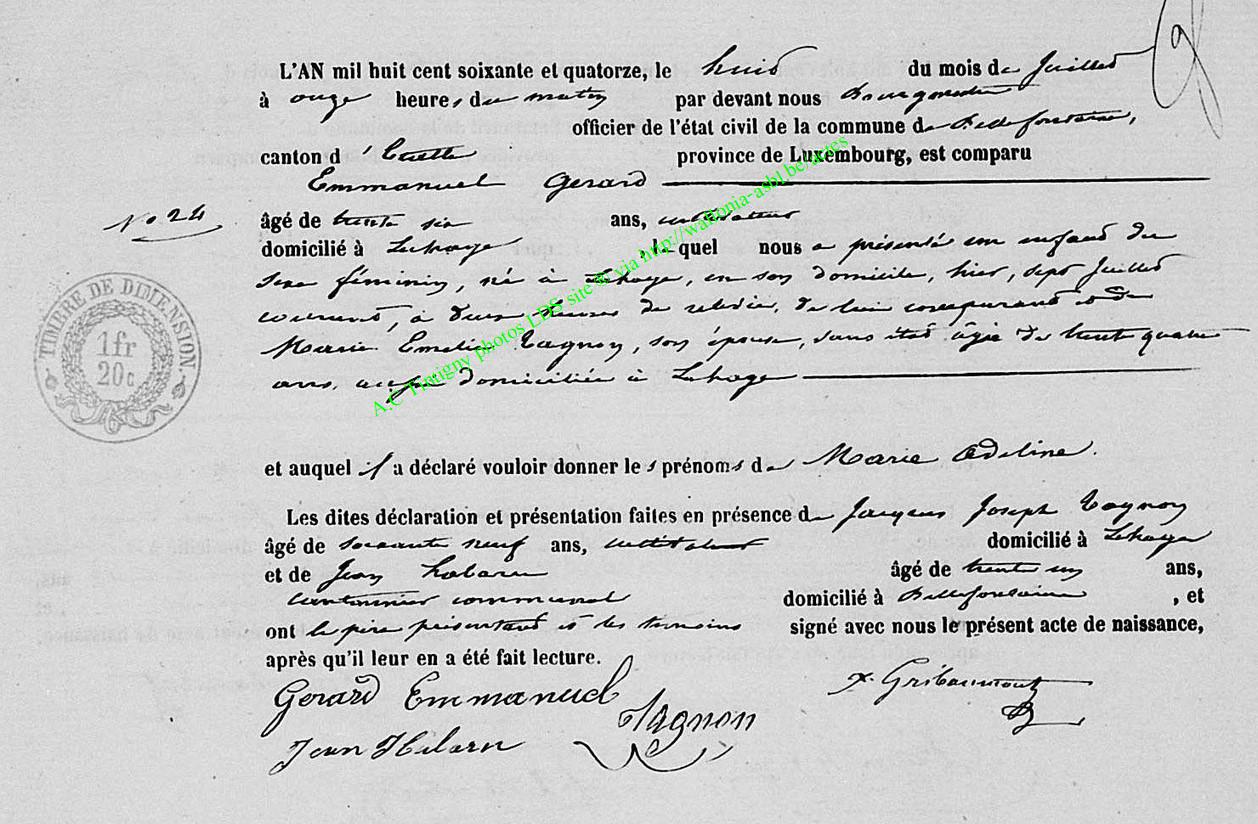 L'AN mil huit cent soixante et quatorze, le huit du mois de Juillet
à onze heures du matin par devant nous Bourgmestre
officier de l'état civil de la commune de Bellefontaine,
canton d'Etalle province de Luxembourg, est comparu
Emmanuel Gerard
No 24
âgé de trente six ans, cultivateur
domicilié à Lahage, lequel nous a présenté un enfant du
sexe féminin, né à Lahage, en son domicile, hier, sept Juillet
courant, à deux heures de relevée, de lui comparant et de
Marie Emélie Tagnon, son épouse, sans état âgée de trente quatre
ans, aussi domiciliée à Lahage
et auquel il a déclaré vouloir donner les prénoms de Marie Adeline.
Les dites déclaration et présentation faites en présence de Jacques Joseph Tagnon
âgé de soixante neuf ans, cultivateur domicilié à Lahage
et de Jean âgé de trente un ans,
cantonnier communal domicilié à Bellefontaine, et
ont le père présentant et les témoins signé avec nous le présent acte de naissance,
après qu'il leur en a été fait lecture.
Gerard Emmanuel
Tagnon
Jean
TIMBRE DE DIMENSION.
1fr
20c
A.C Tintigny photos LDS site @ via http://wallonia-asbl.be/actes